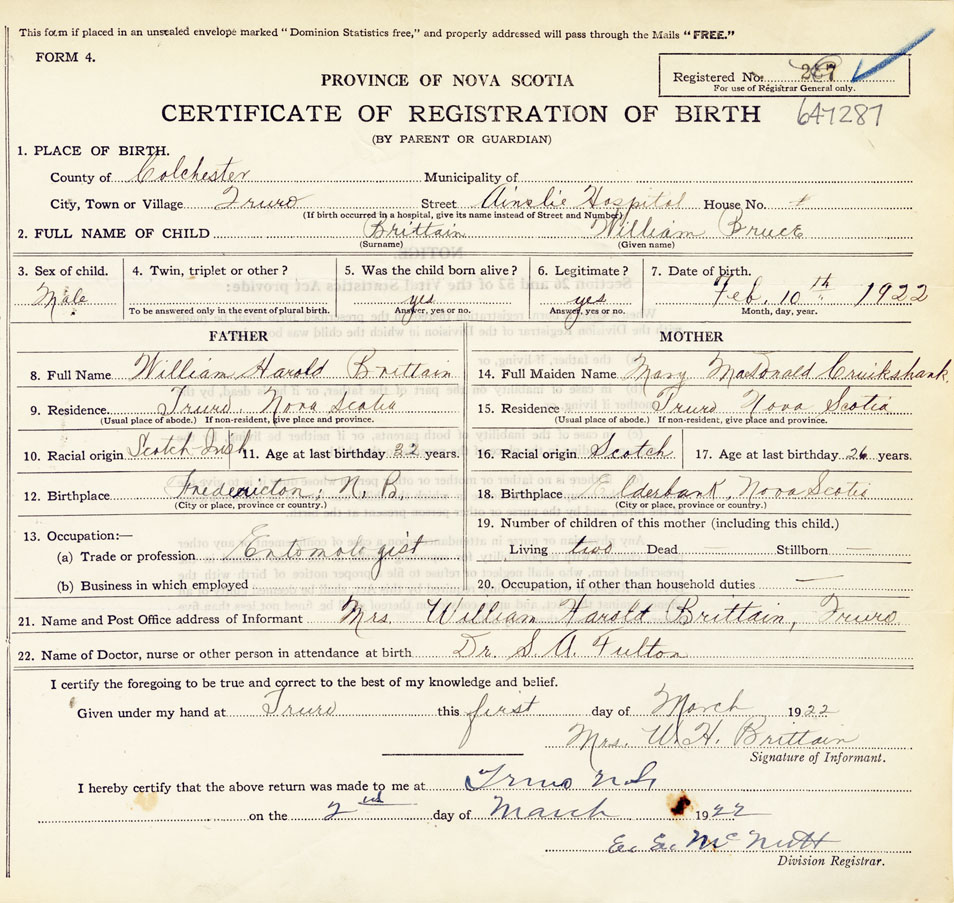 This form if placed in an unsealed envelope marked "Dominion Statistics free," and properly addressed will pass through the Mails "FREE."
FORM 4.
Registered No. 287
For use of Registrar General only.
PROVINCE OF NOVA SCOTIA
CERTIFICATE OF REGISTRATION OF BIRTH 647287
(BY PARENT OR GUARDIAN)
1. PLACE OF BIRTH.
County of Colchester Municipality of
City, Town or Village Truro Street Ainslie Hospital House No.
(If birth occurred in a hospital, give its name instead of Street and Number)
2. FULL NAME OF CHILD Brittain William Bruce
(Surname) (Given name)
3. Sex of child. 4. Twin, triplet or other? 5. Was the child born alive? 6. Legitimate? 7. Date of birth.
Male yes yes Feb. 10th 1922
To be answered only in the event of plural birth. Answer, yes or no. Answer, yes or no. Month, day, year.
FATHER MOTHER
8. Full Name William Harold Brittain 14. Full Maiden Name Mary MacDonald Cruikshank
9. Residence Truro, Nova Scotia 15. Residence Truro Nova Scotia
(Usual place of abode.) If non-resident, give place and province. (Usual place of abode.) If non-resident, give place and province.
10. Racial origin Scotch Irish 11. Age at last birthday years. 16. Racial origin Scotch 17. Age at last birthday 26 years.
12. Birthplace Fredericton, N. B. 18. Birthplace Elderbank, Nova Scotia
(City or place, province or country.) (City or place, province or country.)
13. Occupation:— 19. Number of children of this mother (including this child.)
(a) Trade or profession Entomologist Living two Dead — Stillborn —
(b) Business in which employed 20. Occupation, if other than household duties —
21. Name and Post Office address of Informant Mrs. William Harold Brittain, Truro
22. Name of Doctor, nurse or other person in attendance at birth Dr. S. A. Fulton
I certify the foregoing to be true and correct to the best of my knowledge and belief.
Given under my hand at Truro this first day of March 1922
Mrs. W. H. Brittain
Signature of Informant.
I hereby certify that the above return was made to me at Truro N.S.
on the 2nd day of March 1922
E. E. McNutt
Division Registrar.